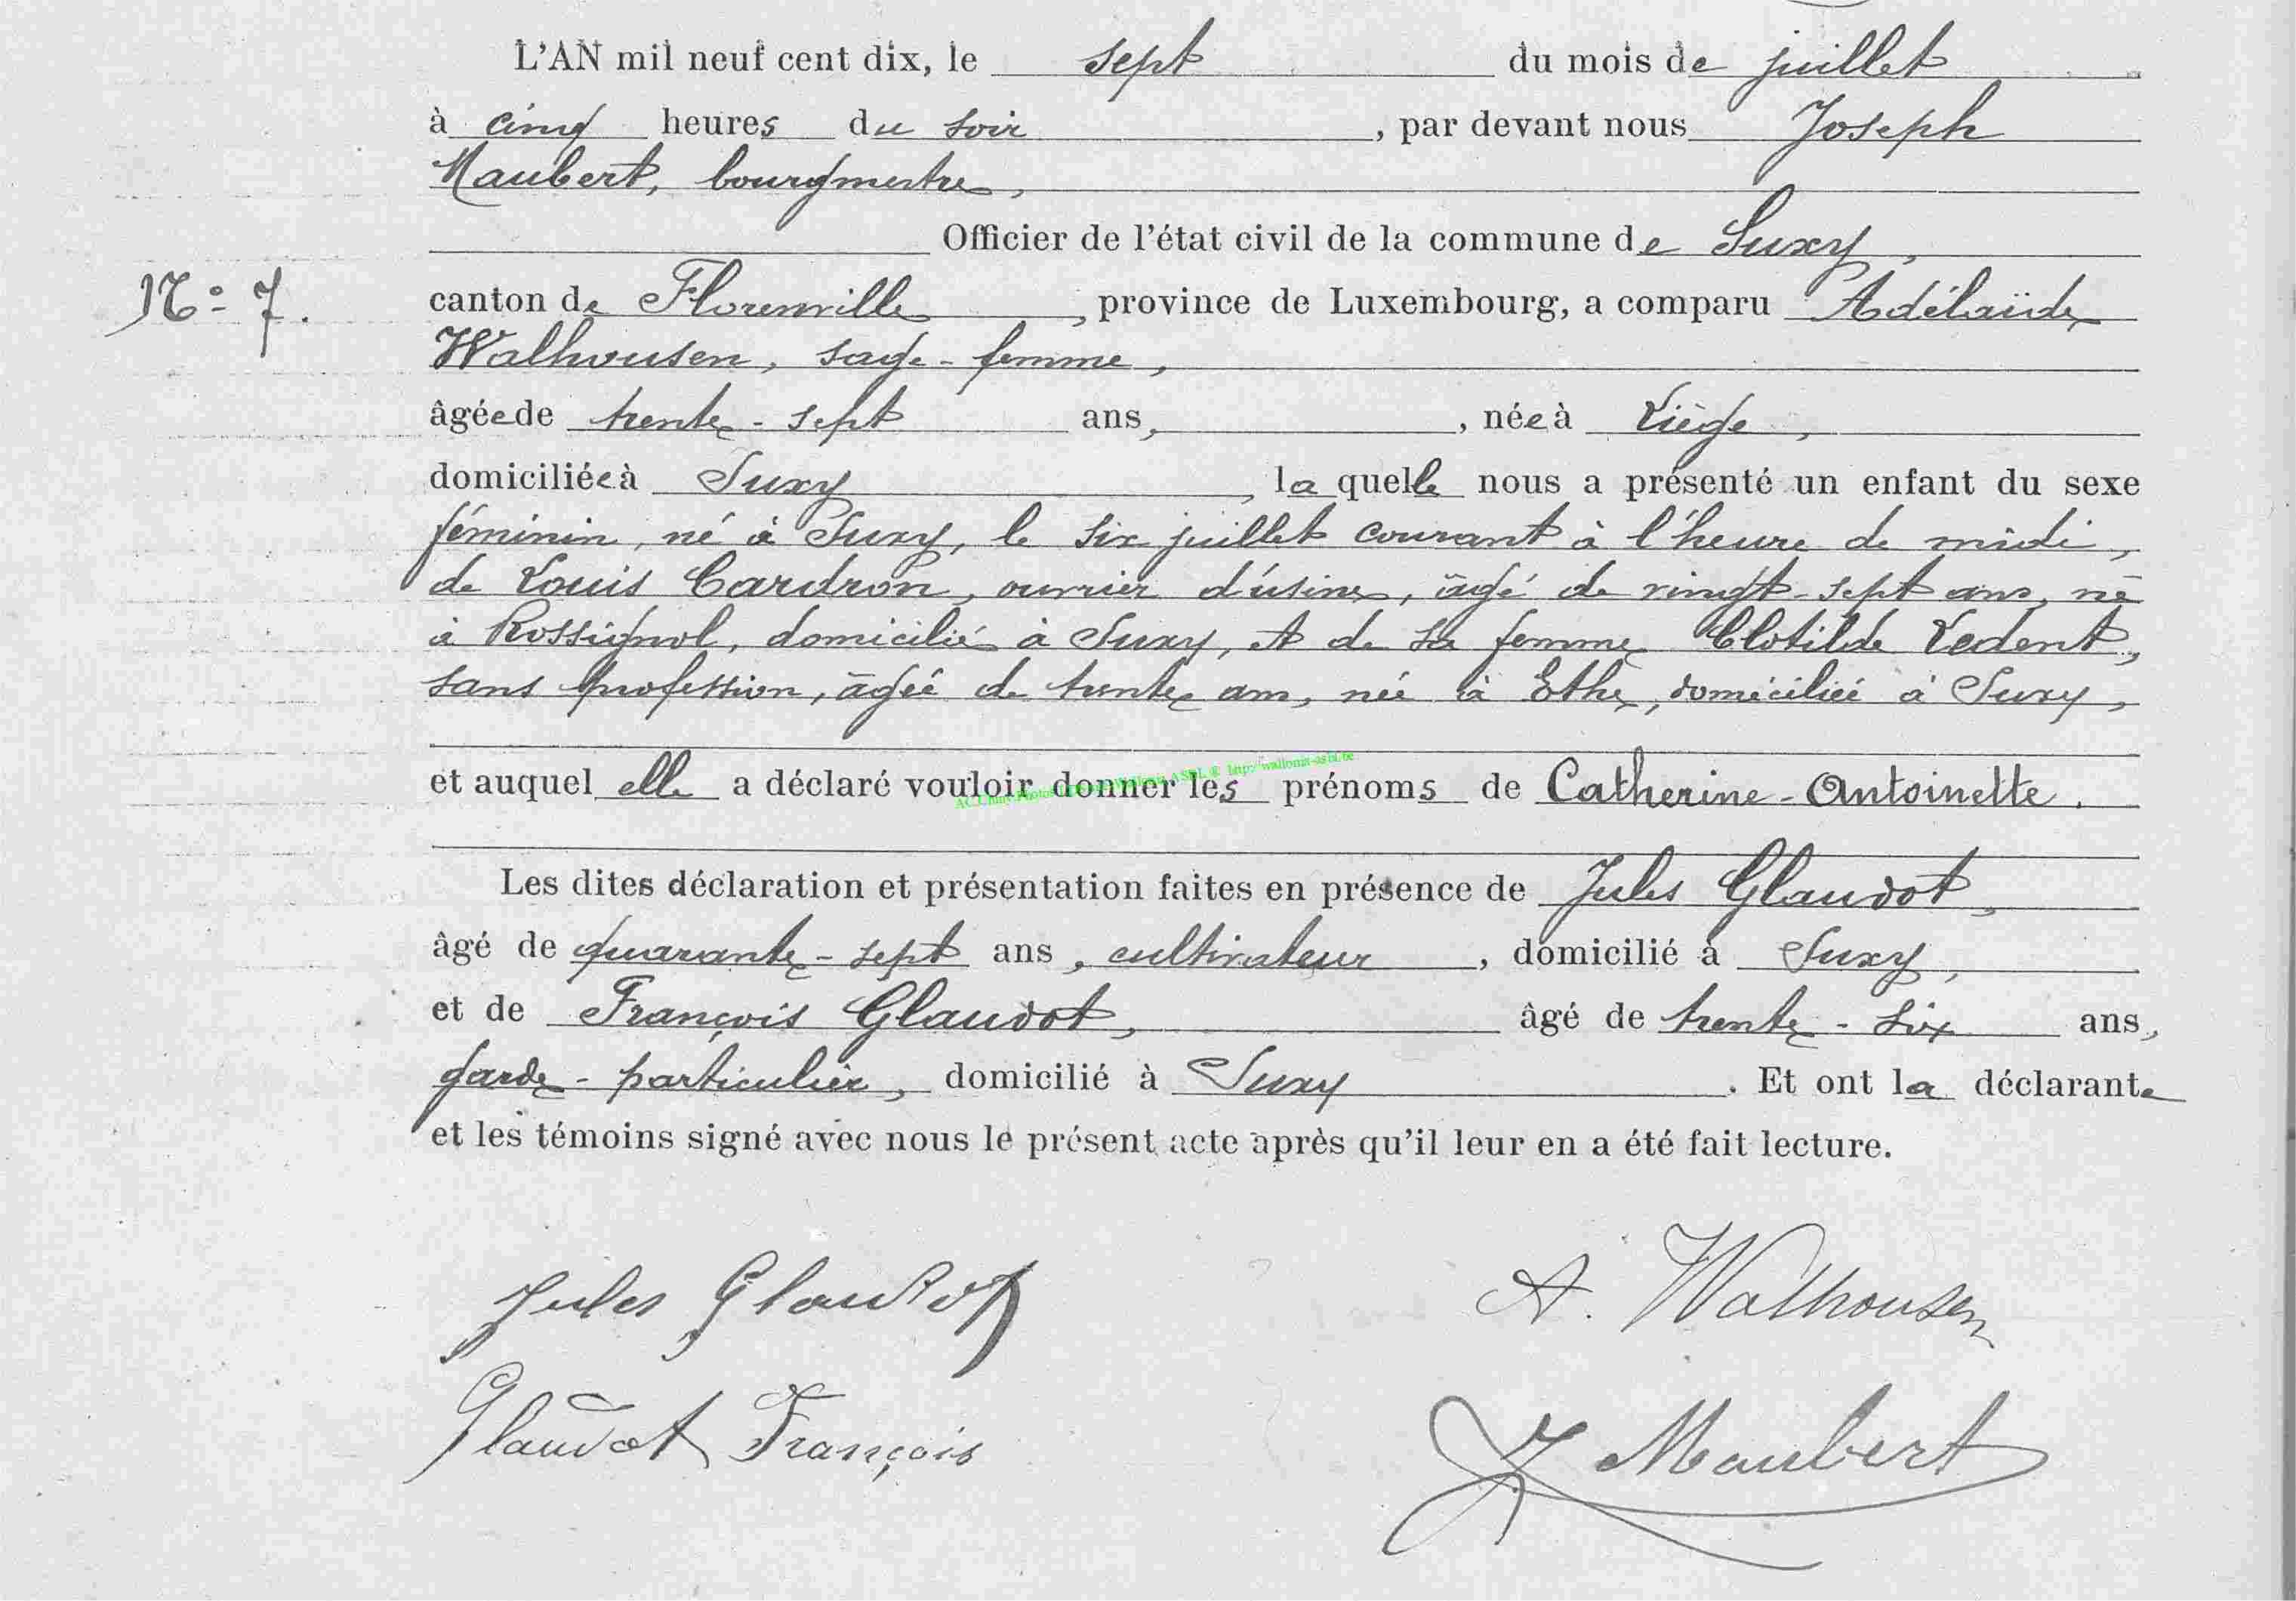 L'AN mil neuf cent dix, le sept du mois de juillet
à cinq heures du soir, par devant nous Joseph
Maubert, bourgmestre,
Officier de l'état civil de la commune de Suxy,
N° 7.
canton de Florenville, province de Luxembourg, a comparu Adélaïde
Walhousen, sage-femme,
âgée de trente-sept ans, née à Liège,
domiciliée à Suxy, laquelle nous a présenté un enfant du sexe
féminin, né à Suxy, le six juillet courant à l'heure de midi,
de Louis Cardron, ouvrier d'usine, âgé de vingt-sept ans, né
à Rossignol, domicilié à Suxy, et de sa femme Clotilde Ledent,
sans profession, âgée de trente ans, née à Ethe, domiciliée à Suxy,
et auquel elle a déclaré vouloir donner les prénoms de Catherine-Antoinette.
ASBL © http://wallonia-asbl.be
Les dites déclaration et présentation faites en présence de Jules Glaudot,
âgé de quarante-sept ans, cultivateur, domicilié à Suxy,
et de François Glaudot, âgé de trente-six ans,
garde-particulier, domicilié à Suxy. Et ont la déclarante
et les témoins signé avec nous le présent acte après qu'il leur en a été fait lecture.
Jules Glaudot
A. Walhousen
Glaudot François
J Maubert